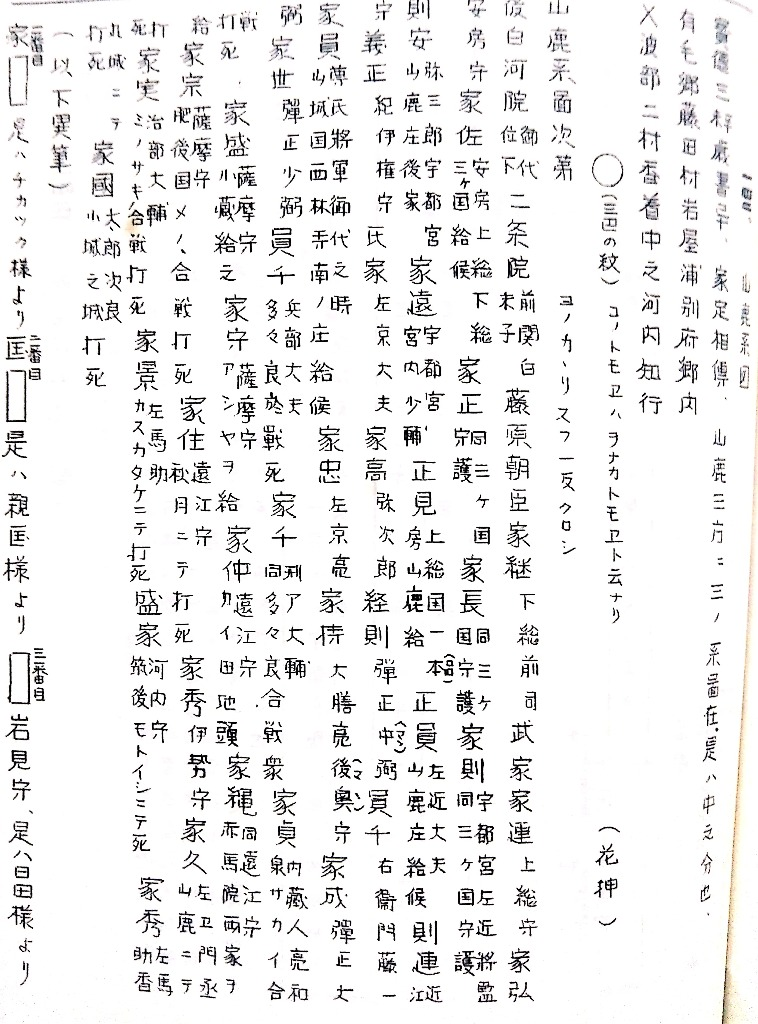 山鹿系圖
山鹿三方ニ三ノ系圖在、是ハ中之分也、
家定相傳、
有毛郷藤田村岩屋浦別府郷内
乂波部二村香着中之河内知行
(三巴の紋)コノトモヱハヲナカトモヱト云ナリ
(花押)
ヨノカヽリスフ一反クロシ
山鹿系圖次第
後白河院御代位下 二条院前関白末子 藤原朝臣家継 下総前司 武家家連 上総守 家弘
安房守 家佐 安房上総下総三ヶ国給候 家正 同三ヶ国守護 家長 同三ヶ国守護 家則 宇都宮左近将監同三ヶ国守護
則安 弥三郎宇都宮山鹿左後家 家遠 宇都宮宮内少輔 正見 上総国一本(名)房山鹿給 正員(マヽ) 左近大夫山鹿左給候 則連 近江
守 義正 紀伊権守 氏家 左京大夫 家高 弥次郎 経則 弾正中弼(マヽ) 員千 右衞門藤一
家員 尊氏將軍御代之時山城国西林寺南ノ庄給候 家忠 左京亮 家持 大膳亮後奥守 家成 彈正大
弼 家世 彈正少弼 員千 兵部大夫多々良於戰死 家千 刑ア大輔同多々良合戦衆 家貞 内藏人亮和泉サカイ合
戦打死 家盛 薩摩守小藏給之 家守 薩摩守アシヤヲ給 家仲 遠江守カイ田地頭 家縄 同遠江守赤馬院両家ヲ
給 家宗 薩摩守肥後国メノ合戦打死 家住 遠江守秋月ニテ打死 家秀 伊勢守 家久 左卫門丞山鹿ニテ
打死 家実 治部大輔ミノサキノ合戦打死 家景 左馬助カスカタケニテ打死 盛家 河内守筑後モトイシニテ死 家秀 左馬助香
九城ニテ打死 家國 太郎次良小城之城打死
(以下異筆)
一番目 家 是ハチカツク様より 二番目 匡 是ハ親匡様より 三番目 岩見守、是八日田様より